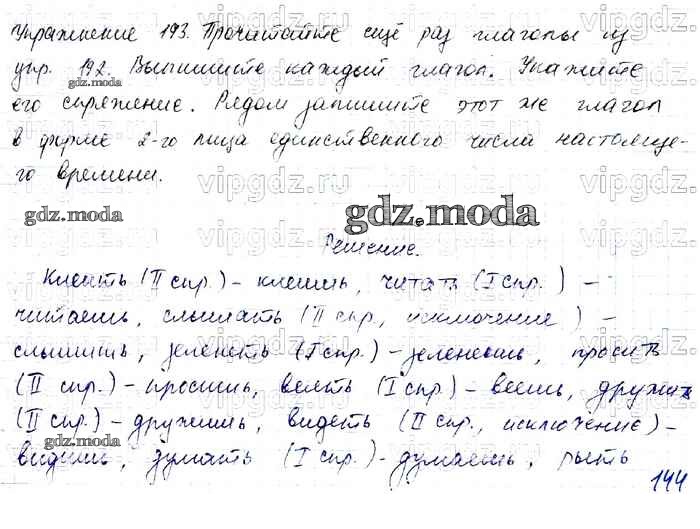 Упражнение 193. Прочитайте ещё раз глаголы из
упр. 192. Выпишите каждый глагол. Укажите
его спряжение. Рядом запишите этот же глагол
в форме 2-го лица единственного числа настояще-
го времени.
gdz.moda
gdz.moda
gdz.moda
Решение.
Клеить (II спр.) – клеишь, читать (I спр.) –
читаешь, слышать (II спр., исключение) –
слышишь, зеленеть (I спр.) – зеленеешь, просить
(II спр.) – просишь, веять (I спр.) – веешь, дружить
(II спр.) – дружишь, видеть (II спр., исключение) –
gdz.moda
видишь, думать (I спр.) – думаешь, рыть
144